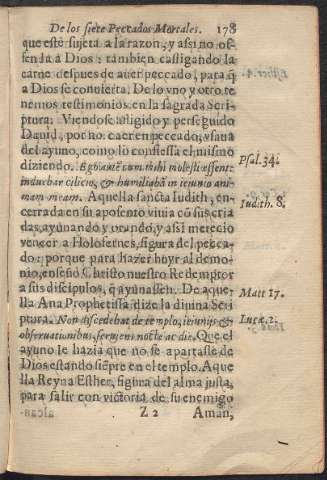 De los siete Peccados Mortales. 178
que esté sujeta a la razon, y assi no of-
fenda a Dios: tambien castigando la
carne despues de auer peccado, para q̃
a Dios se conuierta. De lo vno y otro te
nemos testimonios en la sagrada Scri-
ptura: Viendose afligido y perseguido
Dauid, por no caer en peccado, vsaua
del ayuno, como lo confiessa el mismo
diziendo. Ego autẽ cum mihi molesti essent:
induebar cilicio, & humiliabã in ieiunio ani-
mam meam. Aquella sancta Iudith, en-
cerrada en su aposento viuia cõ sus cria
das, ayunando y orando, y assi merecio
vencer a Holofernes, figura del pecca-
do: porque para hazer huyr al demo-
nio, enseñó Christo nuestro Redemptor
a sus discipulos, q̃ ayunassen. De aque-
lla Ana Prophetissa dize la diuina Scri
ptura. Non discedebat de templo, ieiunijs &
obseruationibus, seruiens nocte ac die. Que el
ayuno le hazia que no se apartasse de
Dios estando siẽpre en el templo. Aque
lla Reyna Esther, figura del alma justa,
para salir con victoria de su enemigo
Z 2 Aman,
Psal. 34.
Iudith. 8.
Matt 17.
Lucæ. 2.